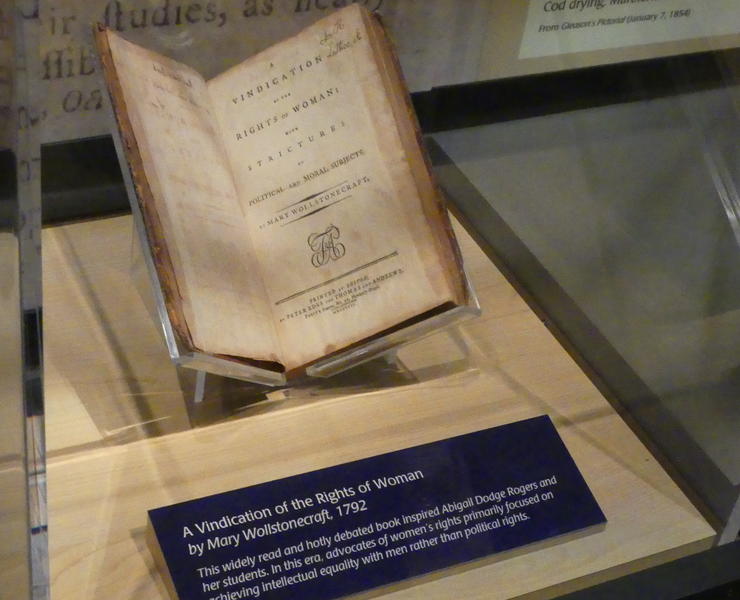 ir ſtudies, as
ſſib
Cod drying.
From Gleason's Pictorial (January 7, 1854)
A
VINDICATION
OF THE
RIGHTS OF WOMAN:
WITH
STRICTURES
ON
POLITICAL AND MORAL SUBJECTS.
BY MARY WOLLSTONECRAFT.
PRINTED AT BOSTON,
BY PETER EDES FOR THOMAS AND ANDREWS,
A Vindication of the Rights of Woman
by Mary Wollstonecraft, 1792
This widely read and hotly debated book inspired Abigail Dodge Rogers and
her students. In this era, advocates of women's rights primarily focused on
achieving intellectual equality with men rather than political rights.